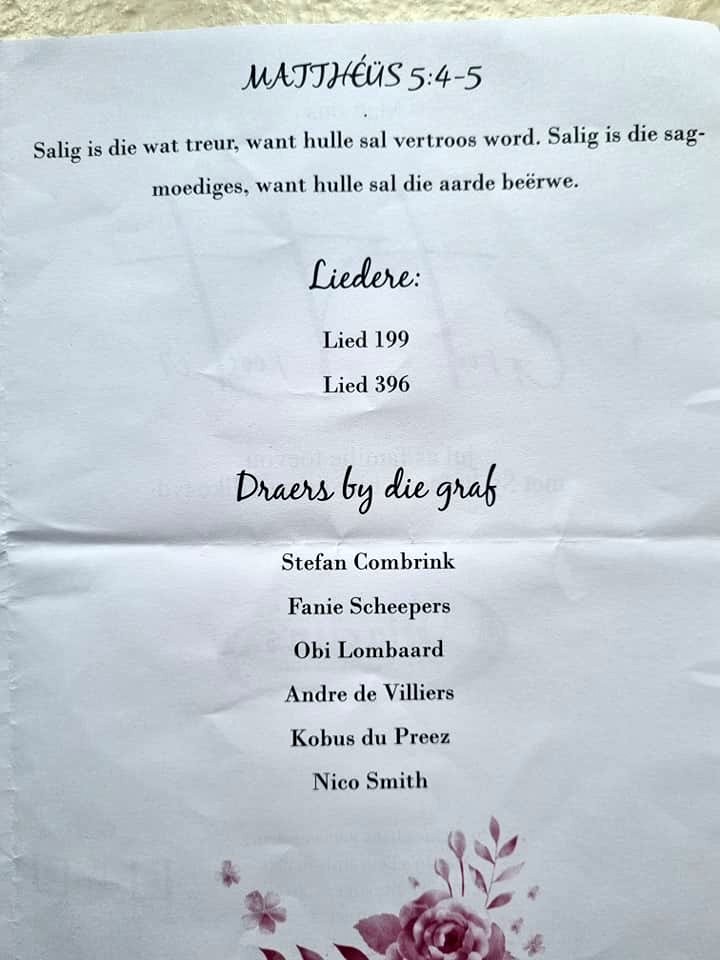 MATTHÉÜS 5:4-5
Salig is die wat treur, want hulle sal vertroos word. Salig is die sag-
moediges, want hulle sal die aarde beërwe.
Liedere:
Lied 199
Lied 396
Draers by die graf
Stefan Combrink
Fanie Scheepers
Obi Lombaard
Andre de Villiers
Kobus du Preez
Nico Smith